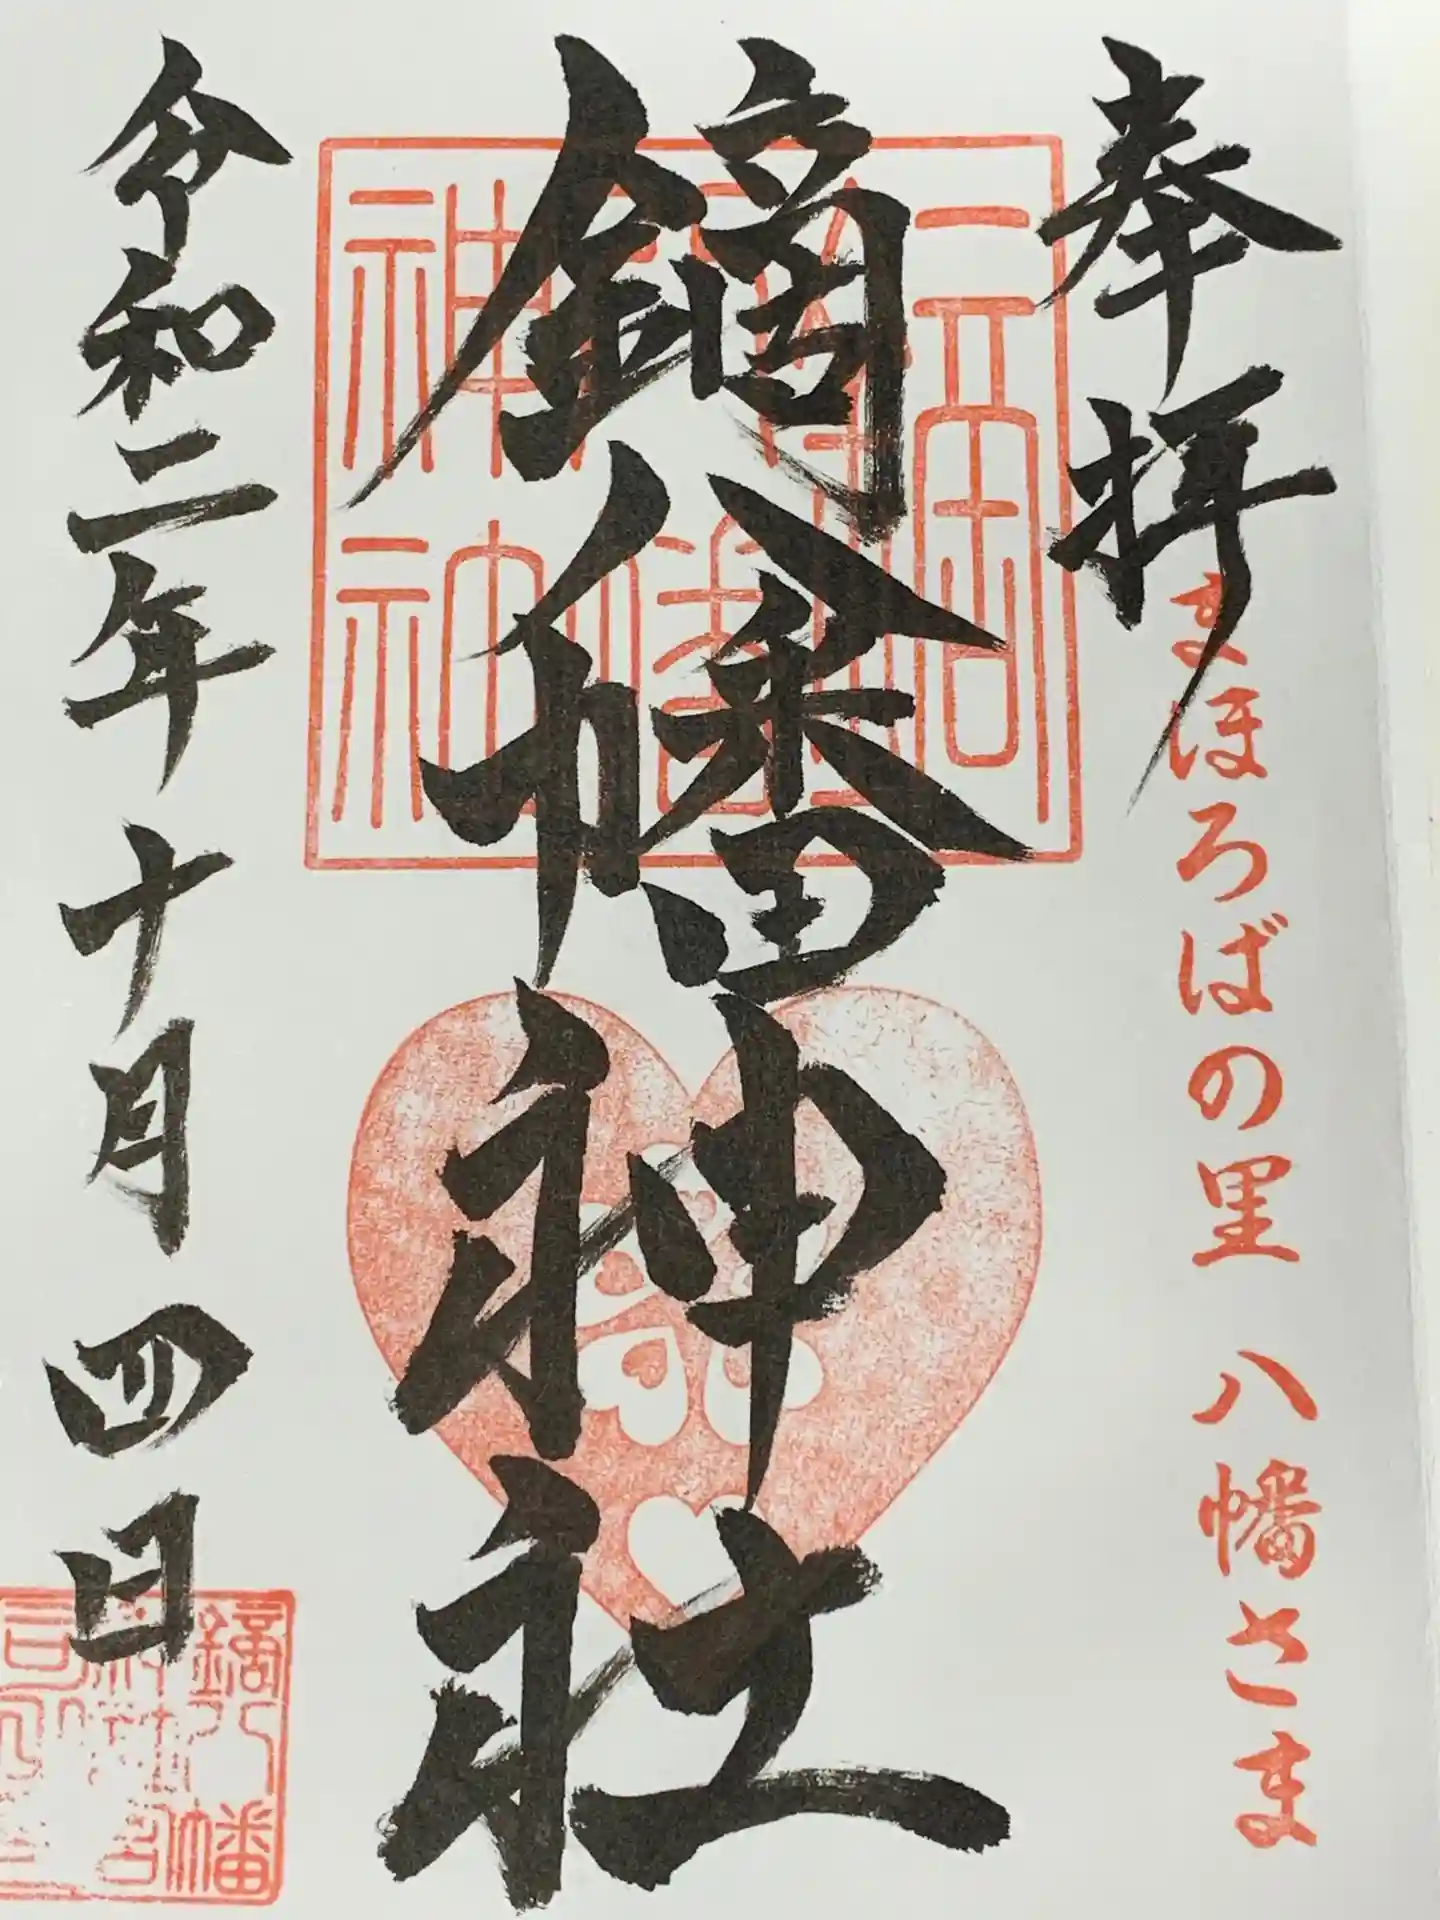 奉拝
まほろばの里 八幡さま
鏑八幡神社
令和二年十月四日